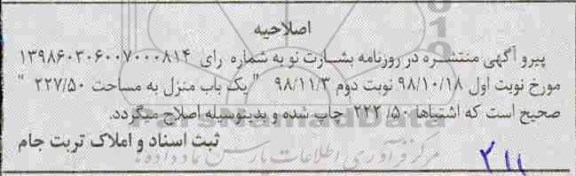 اصلاحیه
پیرو آگهی منتشره در روزنامه بشارت نو به شماره رای ۱۳۹۸۶۰۳۰۶۰۰۷۰۰۰۸۱۴
مورخ نوبت اول ۹۸/۱۰/۱۸ نوبت دوم ۹۸/۱۱/۳ " یک باب منزل به مساحت ۲۲۷/۵۰ "
صحیح است که اشتباها ۲۲۲/۵۰ چاپ شده و بدینوسیله اصلاح میگردد.
ثبت اسناد و املاک تربت جام
۳۱۱